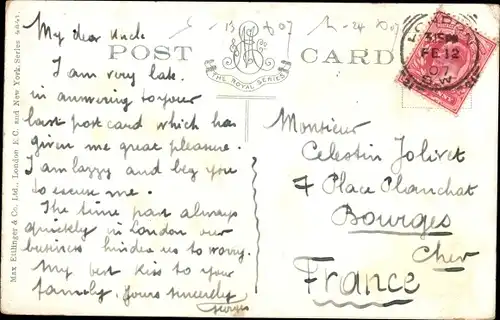 My dear Uncle
I am very late
in answering to your
last post card which has
given me great pleasure.
I am lazzy and beg you
to excuse me.
The time pass always
quickly in London our
business hinder us to worry.
My best kiss to your
family. Yours sincerely
Georges
POST CARD
THE ROYAL SERIES
Monsieur
Celestin Jolivet
7 Place Planchat
Bourges
Cher
France
LONDON
FE 12
07
Max Ettlinger & Co. Ltd., London E.C. and New York. Series